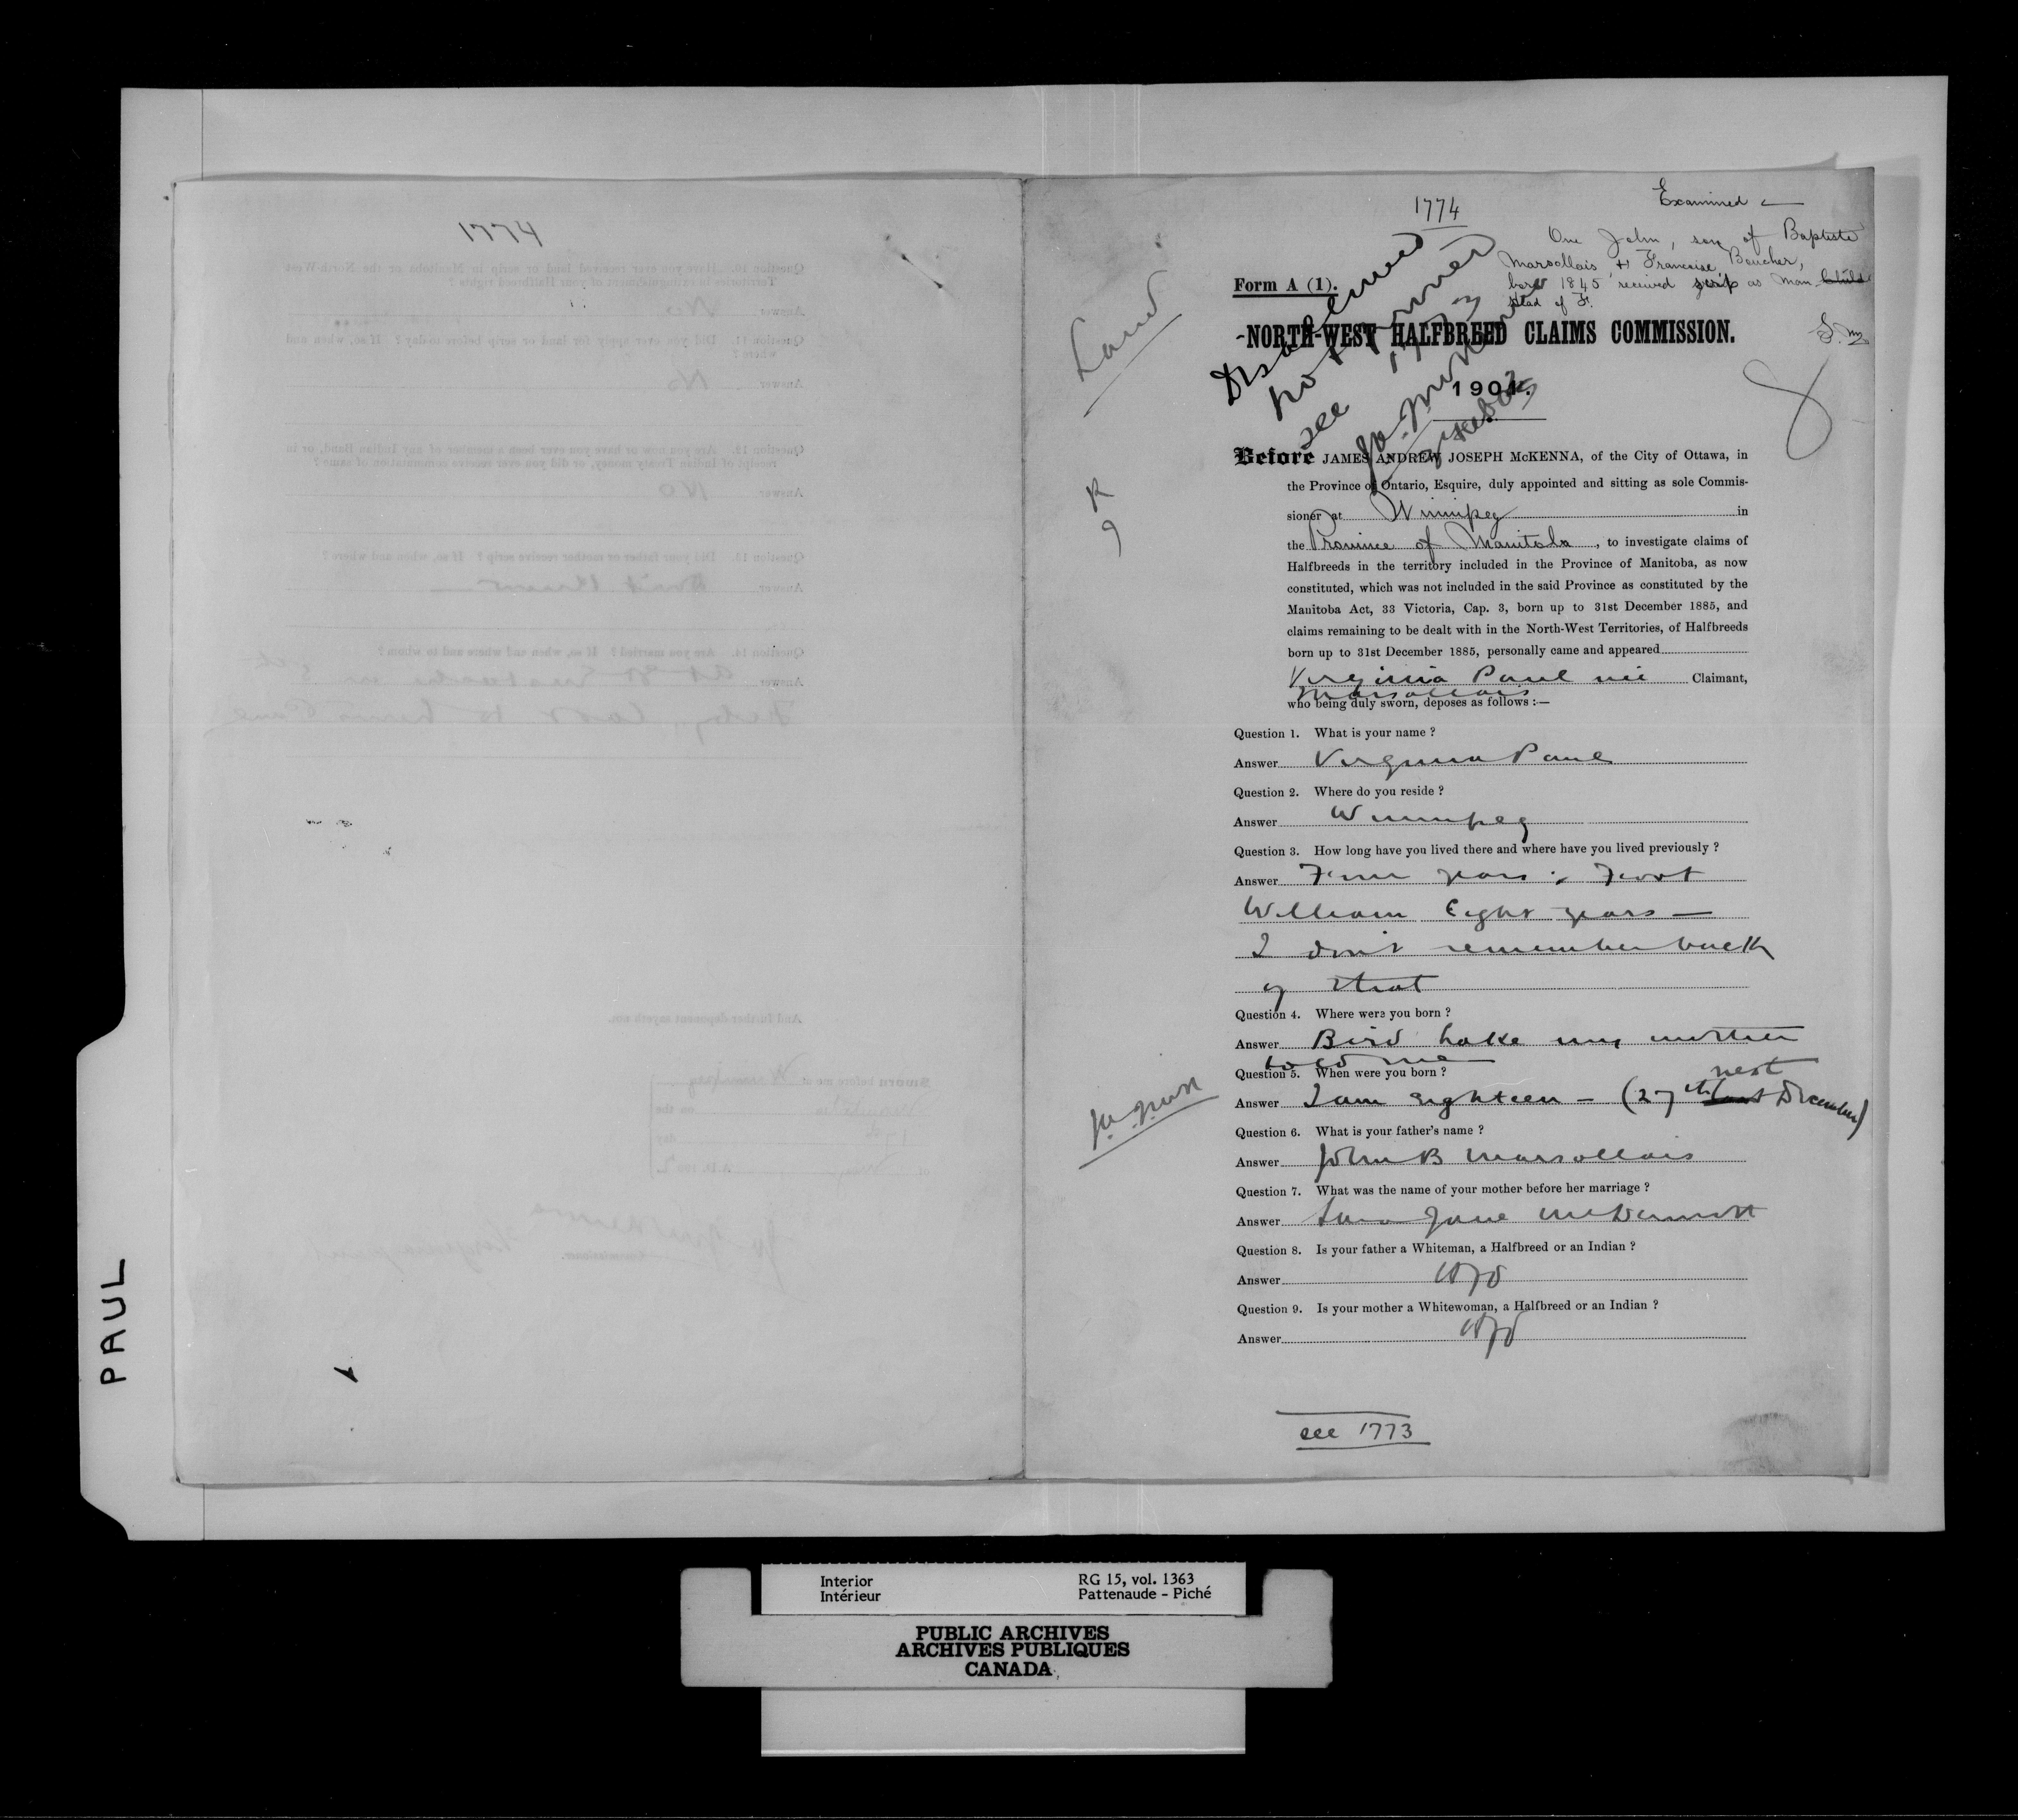 1774
Examined
One John, son of Baptiste
Marsollais & Francoise Boucher,
born 1845 received scrip as Man. Child
Head of F.
Land
Form A (1).
Disallowed
not proven
see 1773
NORTH-WEST HALFBREED CLAIMS COMMISSION.
1901.
Before JAMES ANDREW JOSEPH McKENNA, of the City of Ottawa, in
the Province of Ontario, Esquire, duly appointed and sitting as sole Commis-
sioner at Winnipeg in
the Province of Manitoba, to investigate claims of
Halfbreeds in the territory included in the Province of Manitoba, as now
constituted, which was not included in the said Province as constituted by the
Manitoba Act, 33 Victoria, Cap. 3, born up to 31st December 1885, and
claims remaining to be dealt with in the North-West Territories, of Halfbreeds
born up to 31st December 1885, personally came and appeared
Virginia Paul née Claimant,
Marsollais
who being duly sworn, deposes as follows :—
Question 1. What is your name ?
Answer Virginia Paul
Question 2. Where do you reside ?
Answer Winnipeg
Question 3. How long have you lived there and where have you lived previously ?
Answer years : Fort
William Eight years —
I don't remember back
of that
Question 4. Where were you born ?
Answer Bird Lake my mother
told me
Question 5. When were you born ?
next
Answer I am eighteen — (27th last December)
Question 6. What is your father's name ?
Answer John B Marsollais
Question 7. What was the name of your mother before her marriage ?
Answer Jane McDermott
Question 8. Is your father a Whiteman, a Halfbreed or an Indian ?
Answer
Question 9. Is your mother a Whitewoman, a Halfbreed or an Indian ?
Answer
see 1773
PAUL
1774
Question 10. Have you ever received land or scrip in Manitoba or the North-West
Territories in extinguishment of your Halfbreed rights ?
Answer No
Question 11. Did you ever apply for land or scrip before to-day ? If so, when and
where ?
Answer No
Question 12. Are you now or have you ever been a member of any Indian Band, or in
receipt of Indian Treaty money, or did you ever receive commutation of same ?
Answer No
Question 13. Did your father or mother receive scrip ? If so, when and where ?
Answer Don't know
Question 14. Are you married ? If so, when and where and to whom ?
Answer
And further deponent sayeth not.
Sworn before me at Winnipeg
on the
day
Commissioner.
Interior
Intérieur
RG 15, vol. 1363
Pattenaude - Piché
PUBLIC ARCHIVES
ARCHIVES PUBLIQUES
CANADA